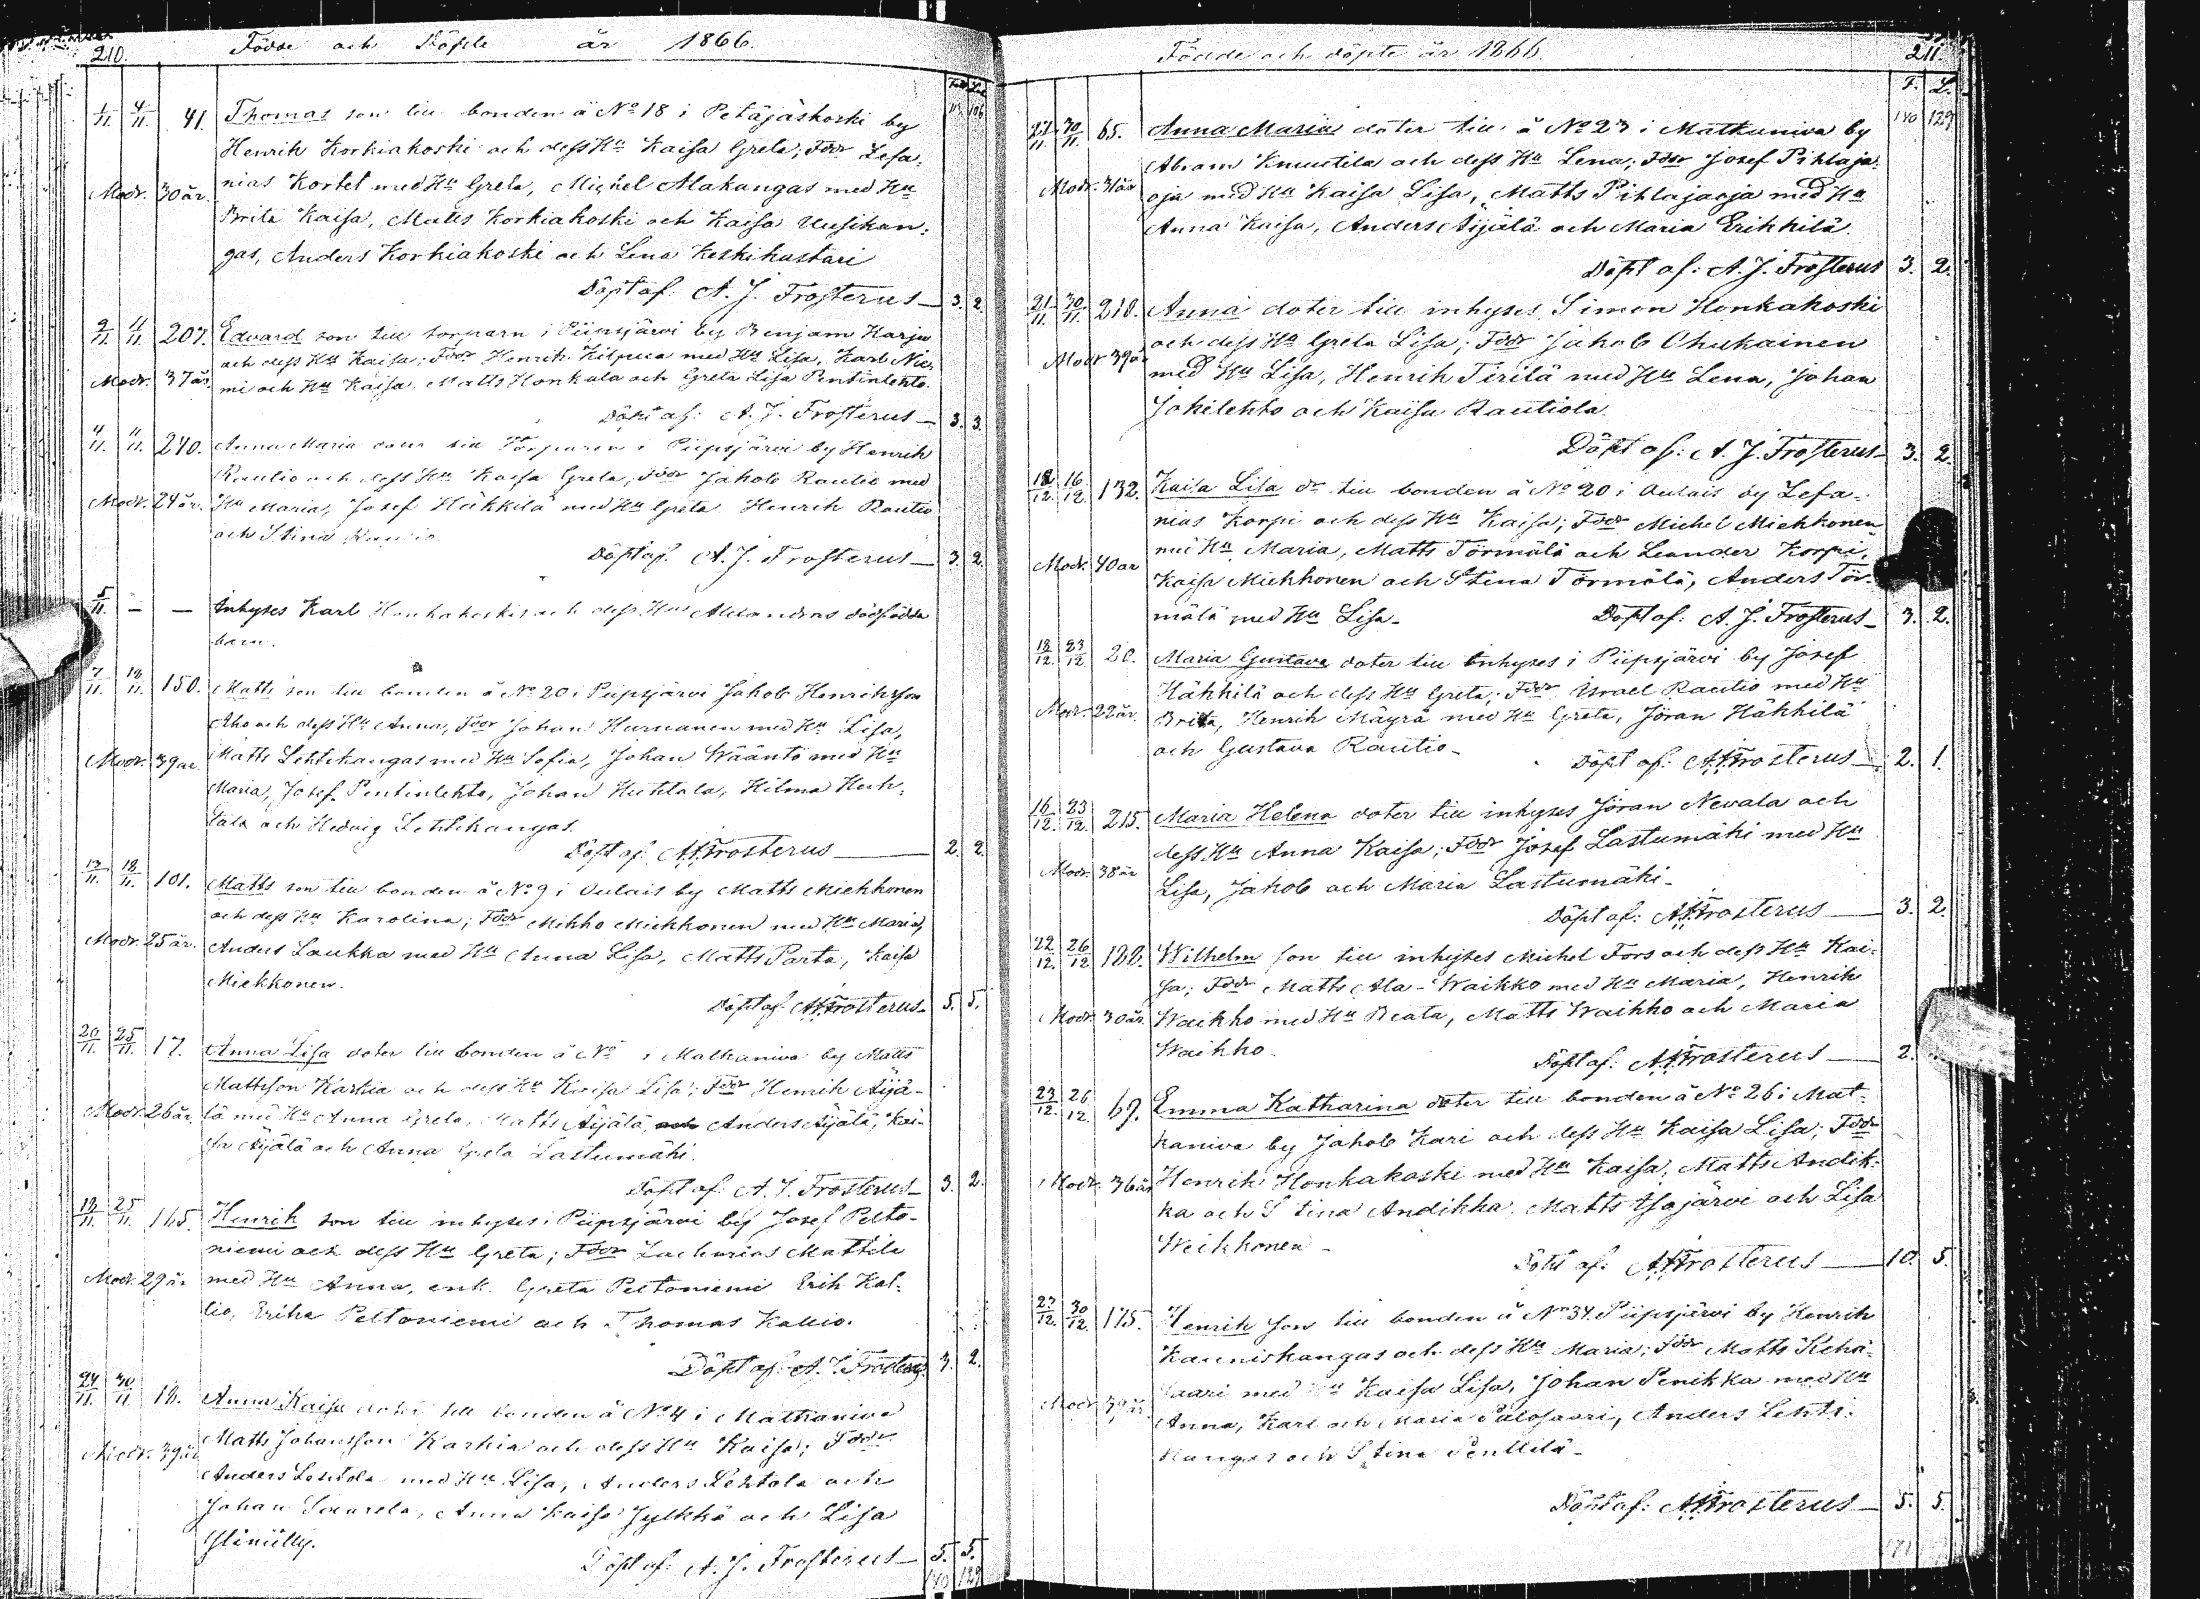 210.
Födde och Döpte år 1866.
1/11. 4/11. 41. Thomas son till bonden å No 18 i Petäjäskoski by
Henrik Korkiakoski och dess Hu Kaisa Greta; Fddr Zefa-
Modr. 30 år. nias Kortet med Hu Greta, Michel Alakangas med Hu
Brita Kaisa, Matts Korkiakoski och Kaisa Uusikan-
gas, Anders Korkiakoski och Lena Keskikastari
Döpt af: A. J. Frosterus — 3. 2.
2/11. 4/11. 207. Edvard son till torparn i Piipsjärvi by Benjam Harju
och dess Hu Kaisa; Fddr Henrik Kilpua med Hu Lisa, Karl Nie-
Modr. 37 år. mi och Hu Kaisa, Matts Honkala och Greta Lisa Pentinlehto.
Döpt af: A. J. Frosterus — 3. 3.
4/11. 4/11. 240. Anna Maria doter till Torparen i Piipsjärvi by Henrik
Rautio och dess Hu Kaisa Greta; Fddr Jakob Rautio med
Modr. 24 år. Hu Maria, Josef Häkkilä med Hu Greta Henrik Rautio
och Stina Rautio
Döpt af. A. J. Frosterus — 3. 2.
5/11. — — Inhyses Karl Honkakoskis och dess Hus Alexandras dödfödda
barn.
7/11. 18/11. 150. Matts son till bonden å No 20 i Piipsjärvi Jakob Henriksson
Aho och dess Hu Anna, Fddr Johan Hurnanen med Hu Lisa,
Modr. 39 år. Matts Lehtikangas med Hu Sofia, Johan Wääntö med Hu
Maria, Josef Pentinlehto, Johan Huhtala, Hilma Huh-
tala och Hedvig Lehtikangas.
Döpt af. A.J.Frosterus — 2. 2.
13/11. 18/11. 101. Matts son till bonden å No 9 i Oulais by Matts Miehkonen
och dess Hu Karolina; Fddr Mikko Miehkonen med Hu Maria,
Modr. 25 år. Anders Laukka med Hu Anna Lisa, Matts Parta, Kaisa
Miehkonen.
Döpt af A.J.Frosterus. 5. 5.
20/11. 25/11. 17. Anna Lisa doter till bonden å No i Matkaniva by Matts
Mattsson Karhia och dess Hu Kaisa Lisa; Fddr Henrik Äijä-
Modr 26 år. lä med Hu Anna Greta, Matts Äijälä, och Anders Äijälä, Kai-
sa Äijälä och Anna Greta Lastumäki.
Döpt af: A. J. Frosterus — 3. 2.
18/11. 25/11. 165. Henrik son till inhyses i Piipsjärvi by Josef Pelto-
niemi och dess Hu Greta; Fddr Zacharias Mattila
Modr. 29 år med Hu Anna, enk. Greta Peltoniemi Erik Kal-
lio, Erika Peltoniemi och Thomas Kallio.
Döpt af: A. J. Frosterus 3. 2.
24/11. 30/11 18. Anna Kaisa doter till bonden å No 4 i Matkaniva
Matts Johansson Karhia och dess Hu Kaisa; Fddr
Modr. 39 år Anders Lehtola med Hu Lisa, Anders Lehtola och
Johan Saarela, Anna Kaisa Jylkkä och Lisa
Ylimülly.
Döpt af: A. J. Frosterus — 5. 5.
140 129
Födde och döpte år 1866.
211.
F. L.
140 129
22/11. 30/11. 65. Anna Maria doter till å No 23 i Matkaniva by
Abram Knuutila och dess Hu Lena; Fddr Josef Pihlaja-
Modr. 31 år oja med Hu Kaisa Lisa, Matts Pihlajaoja med Hu
Anna Kaisa, Anders Äijälä och Maria Erikkilä.
Döpt af: A. J. Frosterus 3. 2.
21/11. 30/11. 218. Anna doter till inhyses Simon Honkakoski
och dess Hu Greta Lisa; Fddr Jakob Ohukainen
Modr 39 år med Hu Lisa, Henrik Tirilä med Hu Lena, Johan
Jokilehto och Kaisa Rautiola.
Döpt af: A. J. Frosterus 3. 2.
12/12. 16/12 132. Kaisa Lisa dr till bonden å No 20 i Oulais by Zefa-
nias Korpi och dess Hu Kaisa; Fddr Michel Miehkonen
Modr. 40 år med Hu Maria, Matts Törmälä och Leander Korpi,
Kaisa Miehkonen och Stina Törmälä, Anders Tör-
mälä med Hu Lisa. Döpt af: A. J. Frosterus 3. 2.
18/12. 23/12 20. Maria Gustava doter till Inhyses i Piipsjärvi by Josef
Häkkilä och dess Hu Greta; Fddr Israel Rautio med Hu
Modr. 22 år. Brita, Henrik Mäyrä med Hu Greta, Jöran Häkkilä
och Gustava Rautio. Döpt af: A.J.Frosterus — 2. 1.
16/12. 23/12. 215. Maria Helena doter till inhyses Jöran Nevala och
dess Hu Anna Kaisa; Fddr Josef Lastumäki med Hu
Modr. 38 år Lisa, Jakob och Maria Lastumäki.
Döpt af: A.J.Frosterus — 3. 2.
22/12. 26/12 188. Wilhelm son till inhyses Michel Fors och dess Hu Kai-
sa; Fddr Matts Ala-Waikko med Hu Maria, Henrik
Modr. 30 år. Waikko med Hu Beata, Matts Waikko och Maria
Waikko. Döpt af: A.J.Frosterus — 2.
23/12. 26/12 69. Emma Katharina doter till bonden å No 26 i Mat-
kaniva by Jakob Kari och dess Hu Kaisa Lisa; Fddr
Modr. 36 år Henrik Honkakoski med Hu Kaisa, Matts Andik-
ka och Stina Andikka, Matts Isojärvi och Lisa
Weikkonen.
Döpt af: A.J.Frosterus — 10. 5.
23/12. 30/12. 175. Henrik son till bonden å No 34 Piipsjärvi by Henrik
Kauniskangas och dess Hu Maria; Fddr Matts Kehä-
Modr. 39 år saari med Hu Kaisa Lisa, Johan Penikka med Hu
Anna, Karl och Maria Palosaari, Anders Lehti-
kangas och Stina Penttilä.
Döpt af: A.J.Frosterus — 5. 5.
171